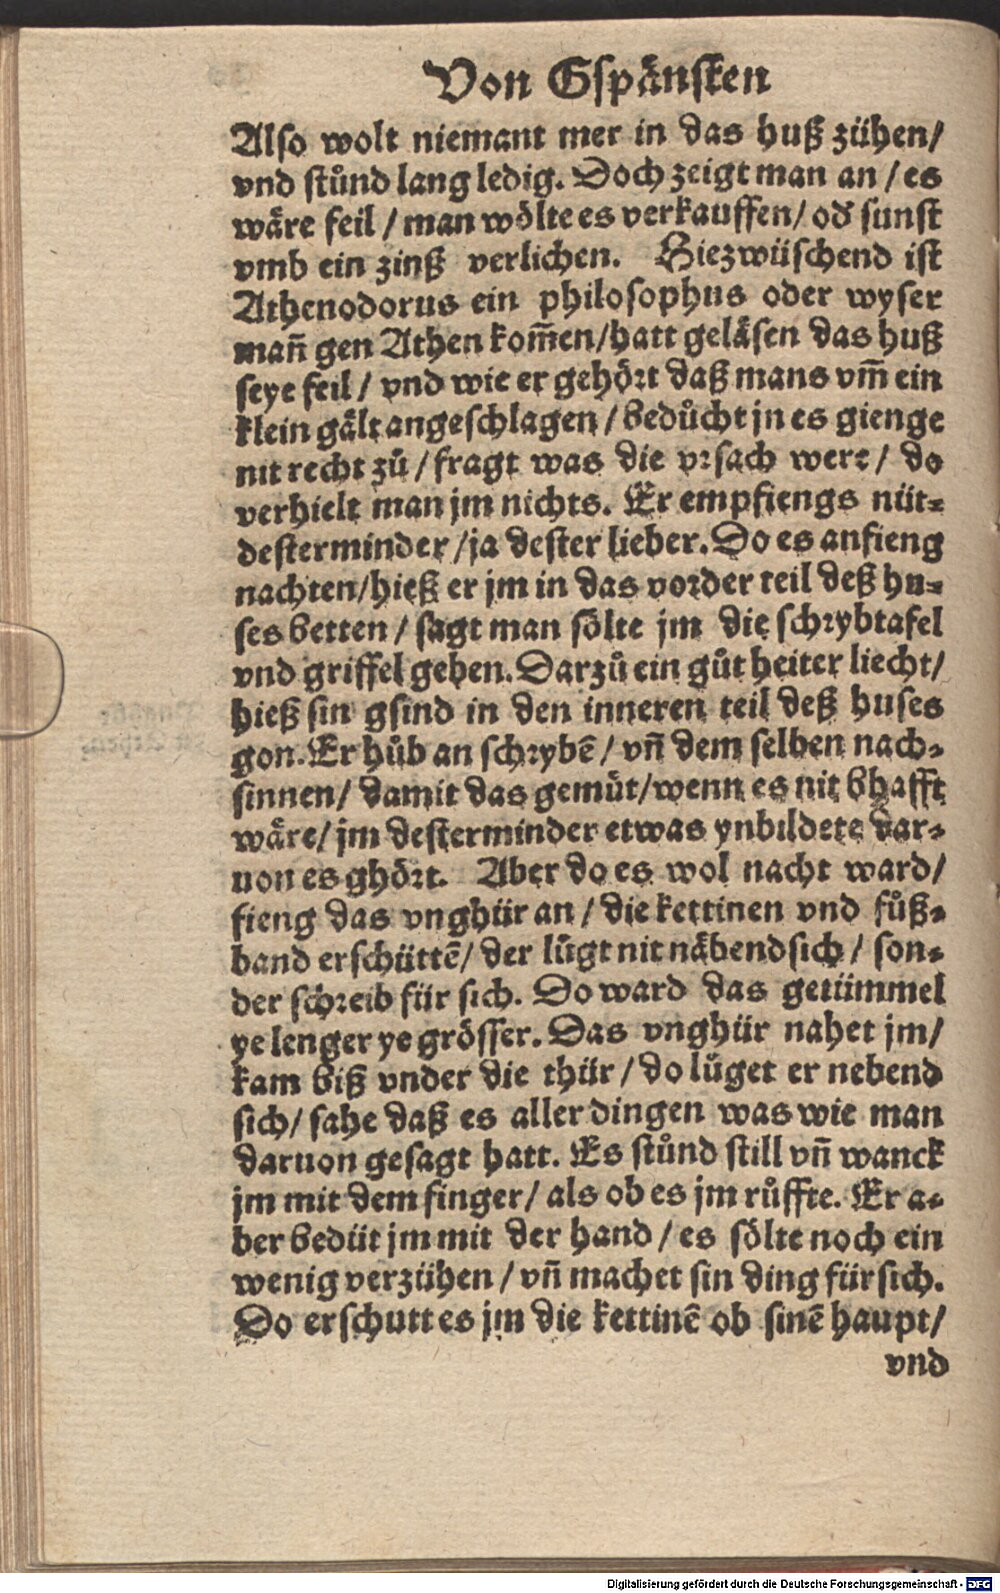 Von Gspänsten
Also wolt niemant mer in das huß zühen/
vnd stůnd lang ledig. Doch zeigt man an / es
wäre feil / man wölte es verkauffen/ oď sunst
vmb ein zinß verlichen. Hiezwüschend ist
Athenodorus ein philosophus oder wyser
mañ gen Athen kom̃en/hatt geläsen das huß
seye feil / vnd wie er gehört daß mans vm̃ ein
klein gält angeschlagen / bedůcht jn es gienge
nit recht zů / fragt was die vrsach were / do
verhielt man jm nichts. Er empfiengs nüt-
desterminder /ja dester lieber. Do es anfieng
nachten/hieß er jm in das vorder teil deß hu-
ses betten / sagt man sölte jm die schrybtafel
vnd griffel geben. Darzů ein gůt heiter liecht/
hieß sin gsind in den inneren teil deß huses
gon. Er hůb an schrybẽ / vñ dem selben nach-
sinnen/ damit das gemüt/wenn es nit bhafft
wäre/ jm desterminder etwas ynbildete dar-
uon es ghört. Aber do es wol nacht ward/
fieng das vnghür an / die kettinen vnd fůß-
band erschüttẽ/ der lůgt nit näbend sich / son-
der schreib für sich. Do ward das getümmel
ye lenger ye grösser. Das vnghür nahet jm/
kam biß vnder die thür / do lůget er nebend
sich/ sahe daß es aller dingen was wie man
daruon gesagt hatt. Es stůnd still vñ wanck
jm mit dem finger/ als ob es jm růffte. Er a-
ber bedüt jm mit der hand / es sölte noch ein
wenig verzühen / vñ machet sin ding für sich.
Do erschutt es jm die kettinẽ ob sinẽ haupt/
vnd
Digitalisierung gefördert durch die Deutsche Forschungsgemeinschaft - DFG